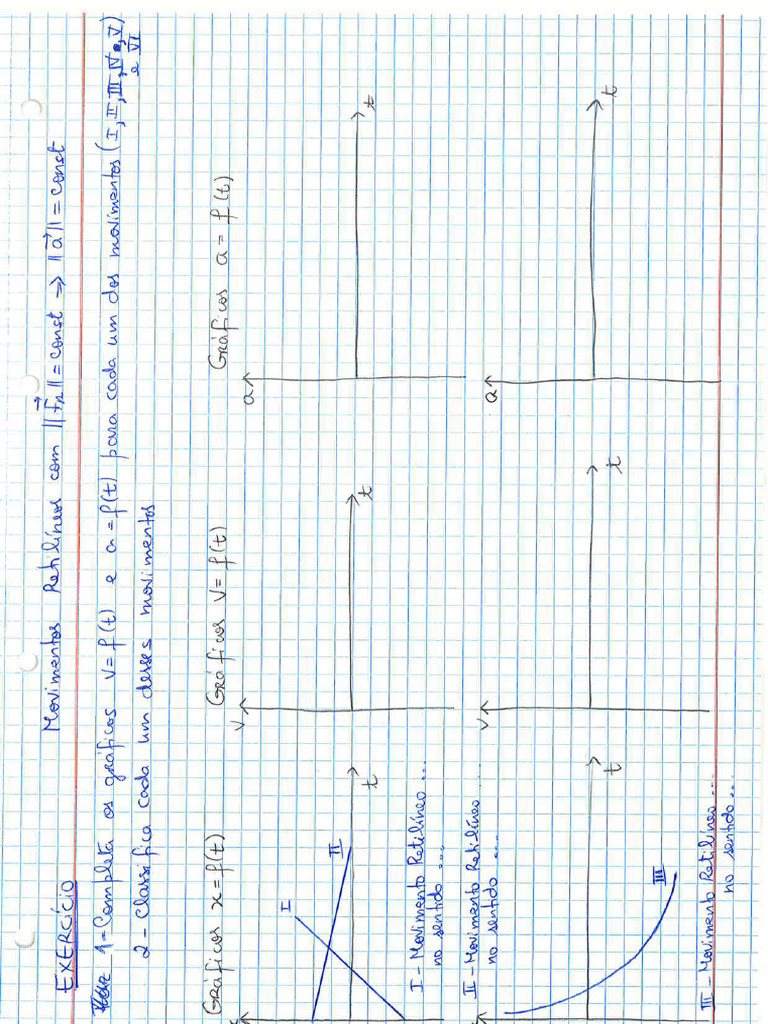 Movimentos Retilíneos com ||F⃗r|| = const ⇒ ||a⃗|| = const
EXERCÍCIO
1-Completa os gráficos v=f(t) e a=f(t) para cada um dos movimentos (I, II, III, IV, V
e VI
2-Classifica cada um desses movimentos
Gráficos x=f(t)
Gráficos v=f(t)
Gráficos a=f(t)
I
II
t
v
t
a
t
I-Movimento Retilíneo...
no sentido...
II-Movimento Retilíneo...
no sentido...
III
t
v
t
a
t
III-Movimento Retilíneo...
no sentido...